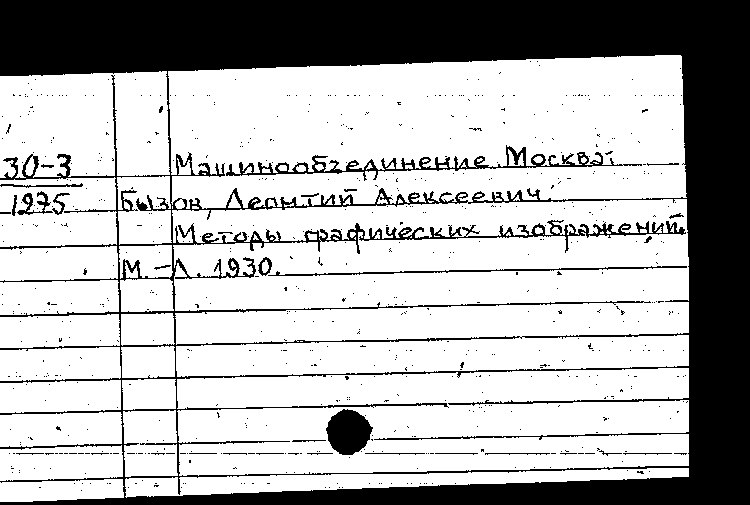 30-3 Машинообъединение. Москва:
1275 Бызов, Леонтий Алексеевич.
Методы графических изображений.
М.-Л. 1930.